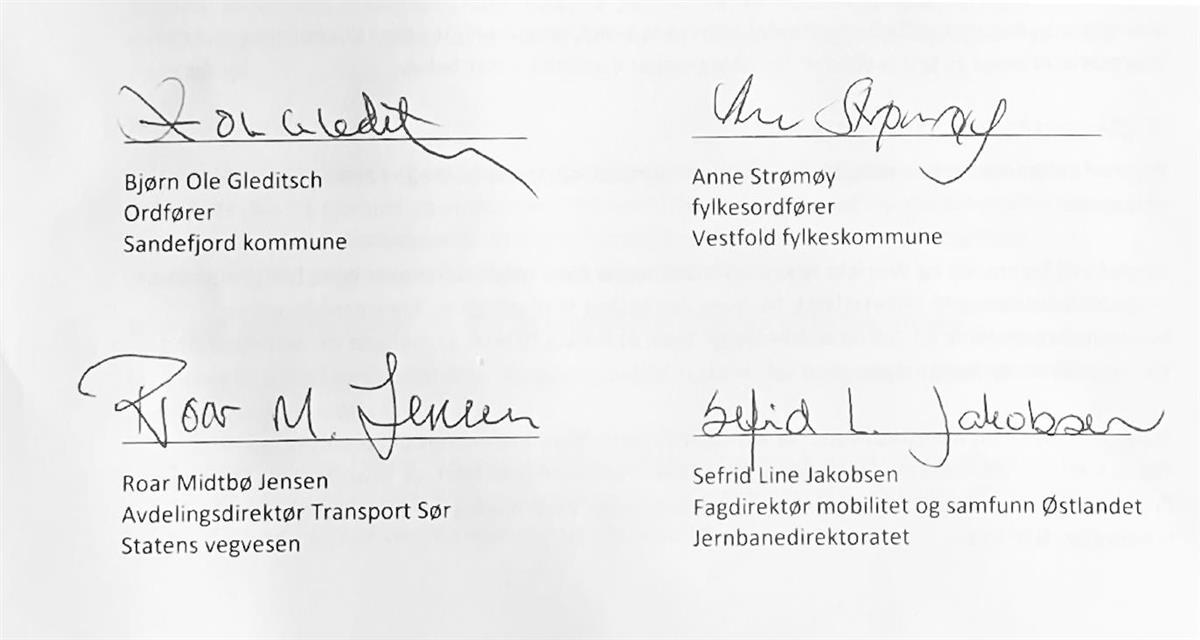 Bjørn Ole Gleditsch
Ordfører
Sandefjord kommune
Anne Strømøy
fylkesordfører
Vestfold fylkeskommune
Roar M. Jensen
Roar Midtbø Jensen
Avdelingsdirektør Transport Sør
Statens vegvesen
Sefrid L. Jakobsen
Sefrid Line Jakobsen
Fagdirektør mobilitet og samfunn Østlandet
Jernbanedirektoratet